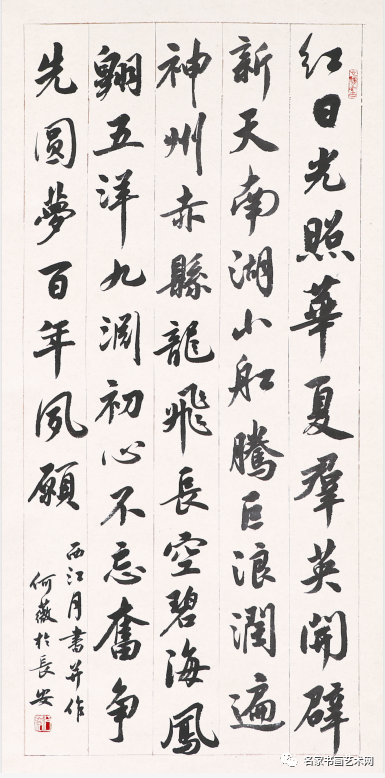 红日光照華夏羣英開闢
新天南湖小船騰巨浪潤遍
神州赤縣龍飛長空碧海鳳
翱五洋九渊初心不忘奮争
先圆夢百年夙願
西江月書并作
何薇於長安
名家书画艺术网